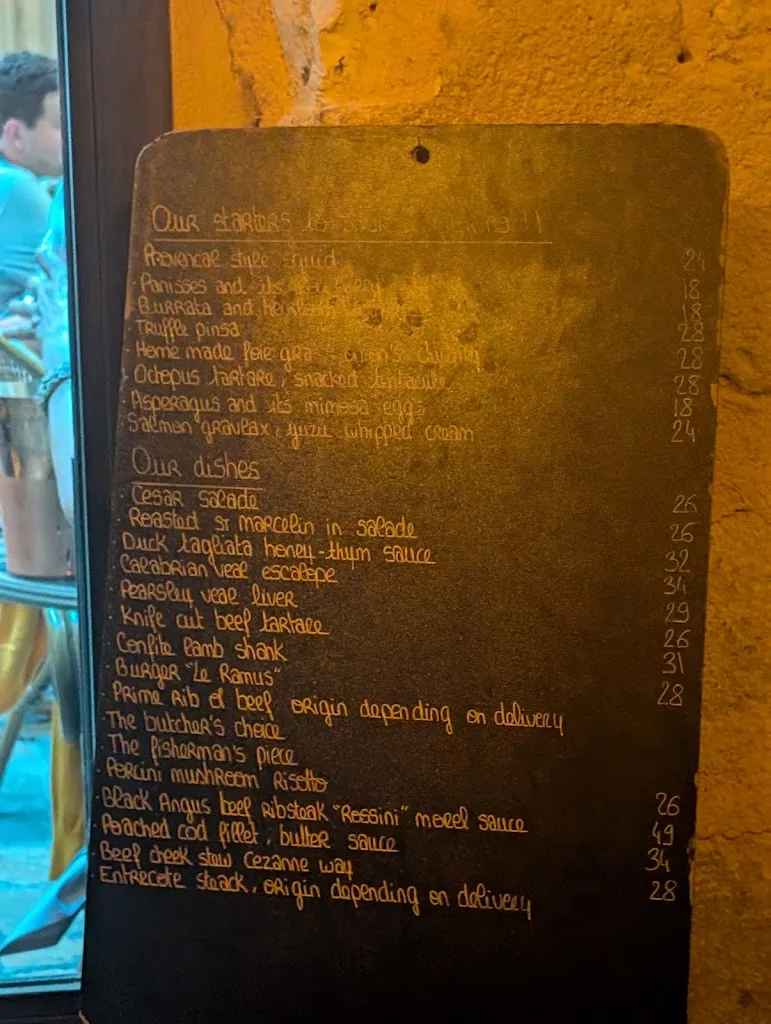 Our starters to
Provencal style squid 24
Panisses and its 18
Burrata and 18
Truffle pinsa 28
Home made foie gra 28
Octopus tartare, snacked tentacule 28
Asperagus and its mimosa eggs 18
Salmon gravlax, yuzu whipped cream 24
Our dishes
Cesar salade 26
Roasted St marcelin in salade 26
Duck tagliata honey-thym sauce 32
Calabrian veal escalope 34
Pearsley veal liver 29
Knife cut beef tartare 26
Confite lamb shank 31
Burger "Le Ramus" 28
Prime Rib of beef origin depending on delivery
The butcher's choice
The fisherman's piece
Porcini mushroom Risotto 26
Black Angus beef ribsteak "Rossini" morel sauce 49
Poached cod fillet, butter sauce 34
Beef cheek stew Cezanne way 28
Entrecete staack, origin depending on delivery